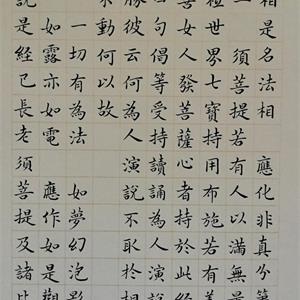 相是名法相 應化非真分第
二 須菩提若有人以滿無量
祇世界七寶持用布施若有善
善女人發菩薩心者持於此經
句偈等受持讀誦為人演說
勝彼云何為人演說不取於相
不動何以故
一切有為法 如夢幻泡影
如露亦如電 應作如是觀
說是經已長老須菩提及諸比